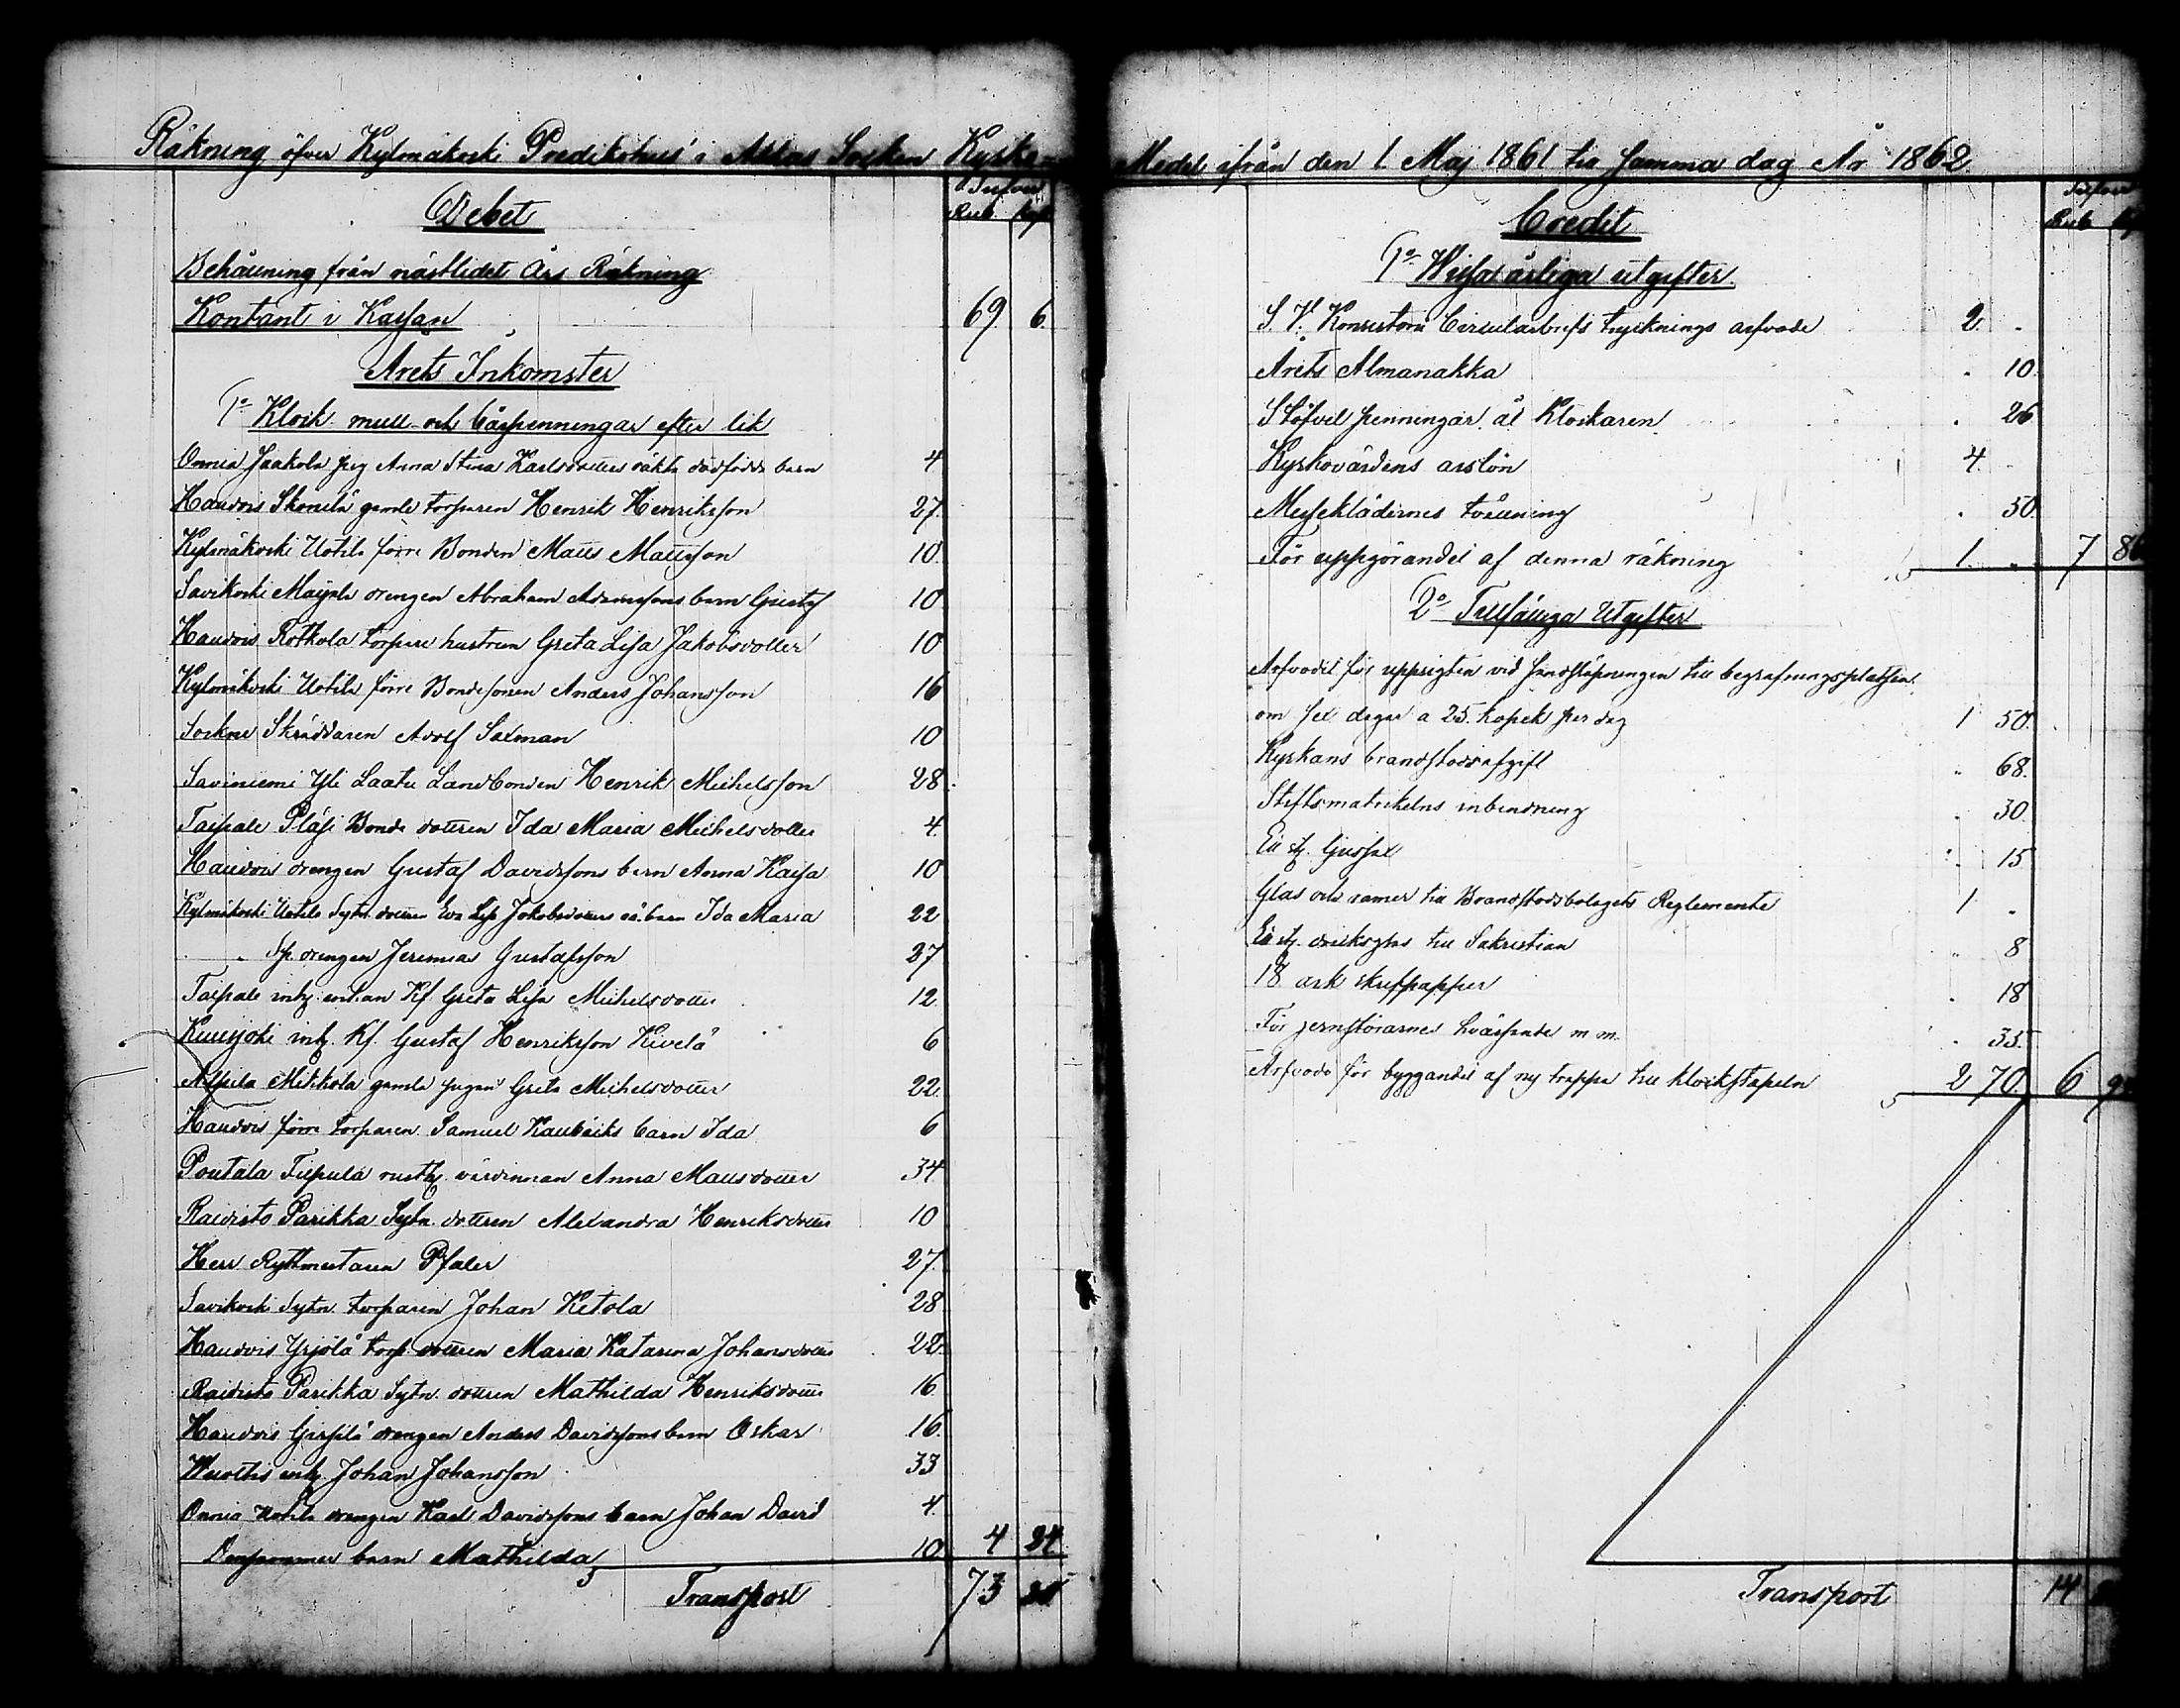 Räkning öfver Kylmäkoski Predikohus i Akkas Socken Kyrko-
Silfver
Rub. Kop.
Debet
Behållning från nästlidet Års Räkning
Kontant i Kassan 69 6
Årets Inkomster
1º Klock- mull- och bårpenningar efter lik
Onnia Jaakola pig Anna Stina Karlsdotters oäkta dödfödda barn 4
Haudois Skonilä gamle torparen Henrik Henriksson 27
Kylmäkoski Uotila förre Bonden Matts Mattsson 10
Savikoski Maijala drengen Abraham Adamssons barn Gustaf 10
Haudois Rotkola torpare hustrun Greta Lisa Jakobsdotter 10
Kylmäkoski Uotila förre Bondesonen Anders Johansson 16
Sockne Skräddaren Adolf Salman 10
Saviniemi Yli Laatu Landbonden Henrik Michelsson 28
Taipale Pläsi Bonde dottren Ida Maria Michelsdotter 4
Haudois drengen Gustaf Davidssons barn Anna Kaisa 10
Kylmäkoski Uotila Sytn. dottren Eva Lisa Jakobsdotters oä. barn Ida Maria 22
" Sp. drengen Jeremias Gustafsson 27
Taipale inh. enkan Kf. Greta Lisa Michelsdotter 12
Kuusjoki inh. Kf. Gustaf Henriksson Kivelä 6
Mitikola gamla pigan Greta Michelsdotter 22
Haudois förre torparen Samuel barn Ida 6
Pontala rusth. värdinnan Anna Mattsdotter 34
Raivisto Parikka Sytn. dottren Alexandra Henriksdotter 10
Herr Ryttmestaren Pfaler 27
Savikoski Sytn. torparen Johan Ketola 28
Haudois Yrjölä torp. dottren Maria Katarina Johansdotter 22
Raivisto Parikka Sytn. dottren Mathilda Henriksdotter 16
Haudois drengen Anders Davidssons barn Oskar 16
inh. Johan Johansson 33
Onnia Uotila drengen Karl Davidssons barn Johan David 4
Densammes barn Mathilda 10 4 24
Transport 73
Medel ifrån den 1 Maj 1861 till samma dag År 1862.
Silfver
Rub. Kop.
Credit
1º Vissa årliga utgifter.
S. V. Konsistorii Circulärbrefs trycknings arfvode 2 "
Årets Almanakka " 10
Stöfvel penningar åt Klockaren " 26
Kyrkovärdens årslön 4 "
Messeklädernes tvättning " 50
För uppgörandet af denna räkning 1 " 7 86
2º Tillfälliga Utgifter
Arfvodet för uppsigten vid sandsläpningen till begrafningsplatsen
om sex dagar a 25 kopek per dag 1 50
Kyrkans brandstodsafgift " 68
Stiftsmatrikelns inbindning " 30
15
Glas och ramer till Brandstodsbolagets Reglemente 1 "
Ett st. dricksglas till Sakristian " 8
18 ark skrifpapper " 18
För jernstörarnes hvässande m m " 35
Arfvode för byggandet af ny trappa till klockstapeln 2 70 6
Transport 14